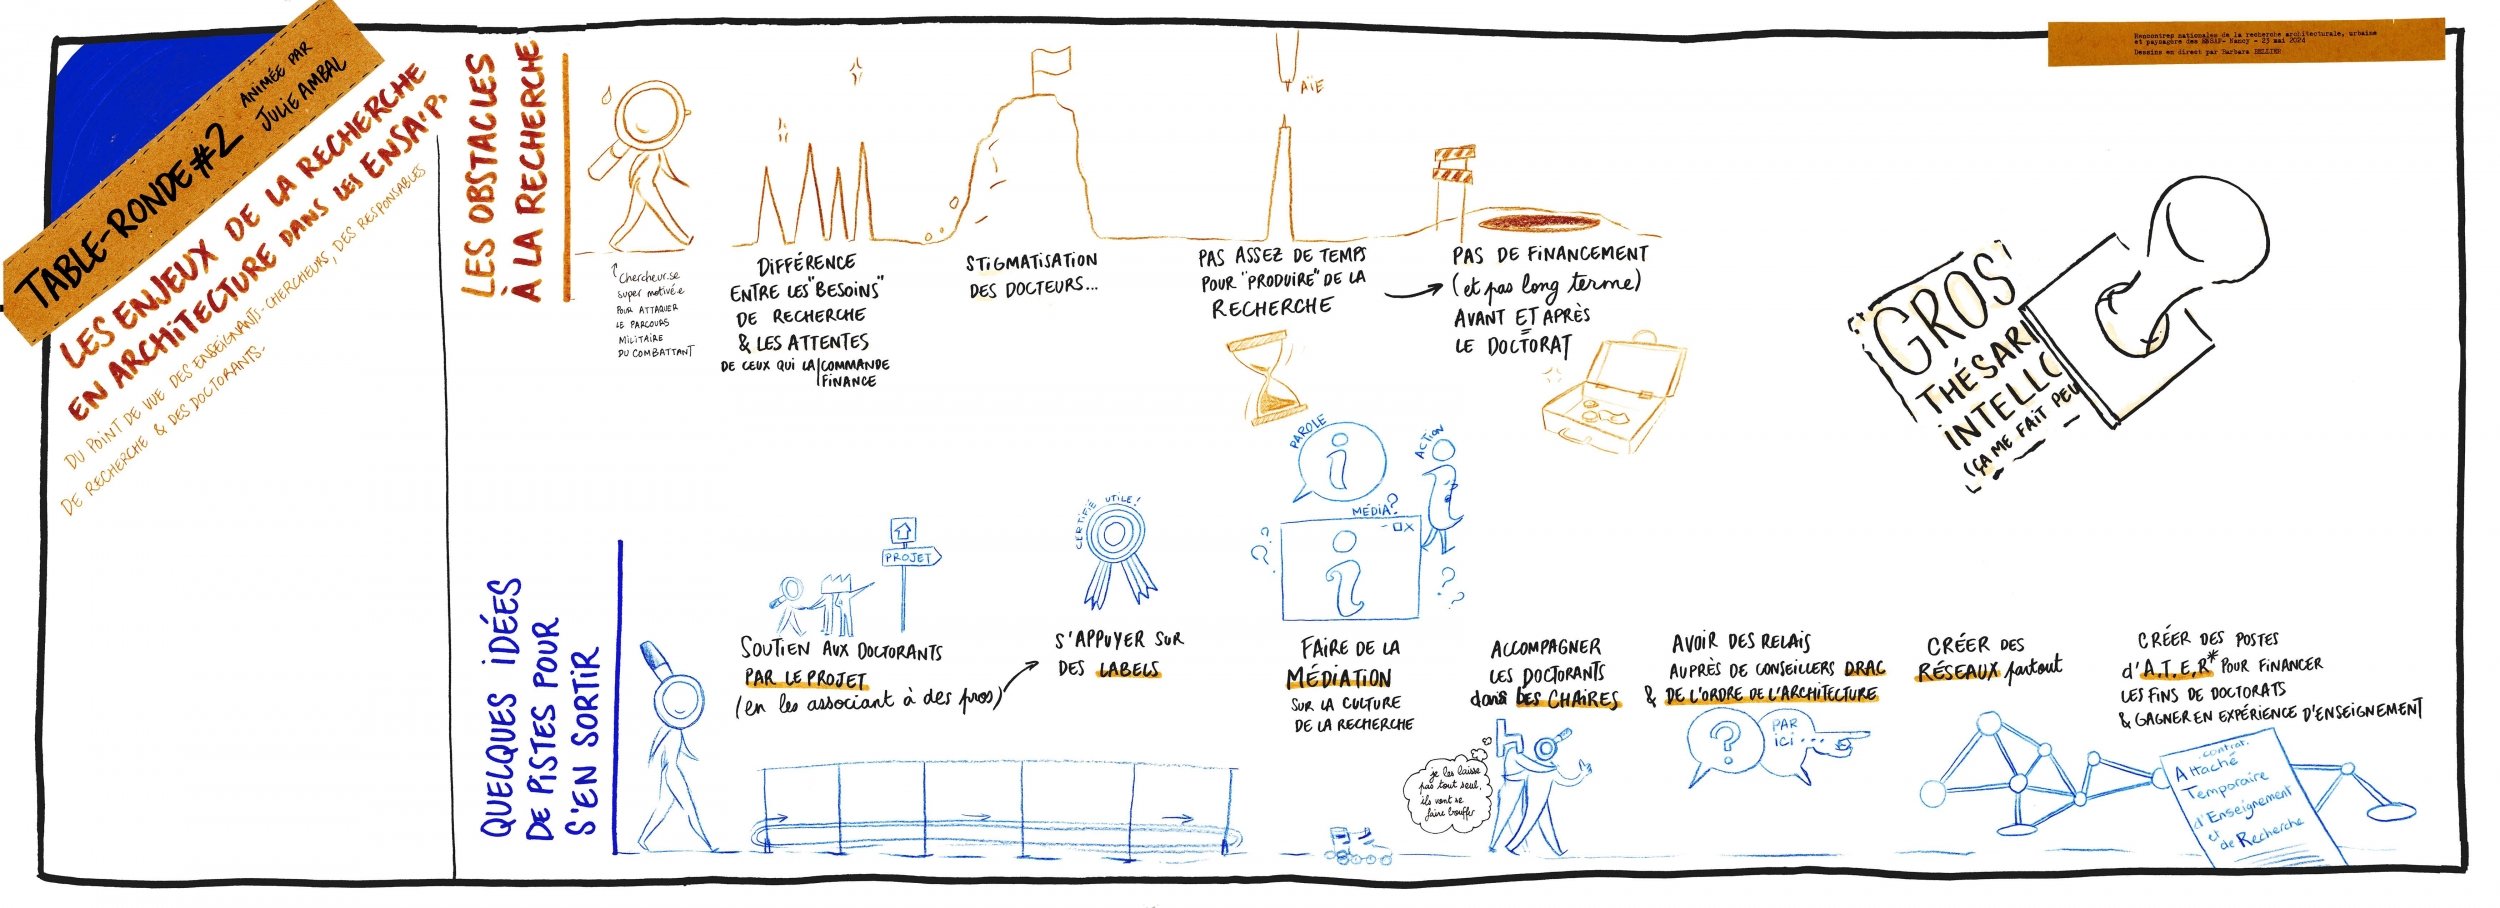 TABLE-RONDE #2
ANIMÉE PAR
JULIE AMBAL
LES ENJEUX DE LA RECHERCHE
EN ARCHITECTURE DANS LES ENSA'P,
DU POINT DE VUE DES ENSEIGNANTS-CHERCHEURS, DES RESPONSABLES
DE RECHERCHE & DES DOCTORANTS-
Rencontres nationales de la recherche architecturale, urbaine
et paysagère des ENSAP- Nancy - 23 mai 2024
Dessins en direct par Barbara BELLIER
LES OBSTACLES
À LA RECHERCHE
Chercheur.se
super motivé.e
POUR ATTAQUER
LE PARCOURS
MILITAIRE
DU COMBATTANT
DIFFÉRENCE
ENTRE LES "BESOINS"
DE RECHERCHE
& LES ATTENTES
DE CEUX QUI LA COMMANDE
FINANCE
STIGMATISATION
DES DOCTEURS...
AÏE
PAS ASSEZ DE TEMPS
POUR "PRODUIRE" DE LA
RECHERCHE
PAS DE FINANCEMENT
(et pas long terme)
AVANT ET APRÈS
LE DOCTORAT
GROS
THÉSARD
INTELLO
ÇA ME FAIT PEUR
QUELQUES IDÉES
DE PISTES POUR
S'EN SORTIR
PROJET
SOUTIEN AUX DOCTORANTS
PAR LE PROJET
(en les associant à des pros)
CERTIFIÉ UTILE!
S'APPUYER SUR
DES LABELS
PAROLE
i
ACTION
MÉDIA?
- □ X
i
? ? ?
? ? ?
FAIRE DE LA
MÉDIATION
SUR LA CULTURE
DE LA RECHERCHE
ACCOMPAGNER
LES DOCTORANTS
dans LES CHAIRES
je les laisse
pas tout seul,
ils vont se
faire bouffer
AVOIR DES RELAIS
AUPRÈS DE CONSEILLERS DRAC
& DE L'ORDRE DE L'ARCHITECTURE
?
PAR
ICI...
CRÉER DES
RÉSEAUX partout
CRÉER DES POSTES
d'A.T.E.R* POUR FINANCER
LES FINS DE DOCTORATS
& GAGNER EN EXPÉRIENCE D'ENSEIGNEMENT
contrat.
Attaché
Temporaire
d'Enseignement
et
de Recherche